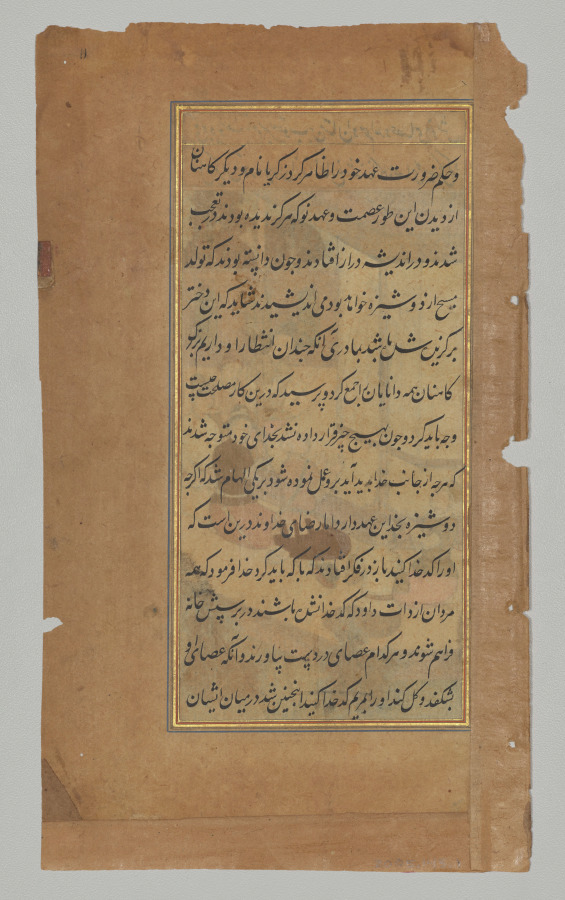 و حکم ضرورت عهد خود را ظاهر کرد زکریا نام و دیگر کاهنان
از ویدن این طور عصمت و عهد نو که هرگز ندیده بودند در تعجب
شدند و در اندیشه دراز افتادند و چون دانسته بودند که تولد
مسیح از دوشیزه خواهد بود می اندیشیدند شاید که این دختر
برگزیده شده باشد بمادری آنکه چندان انتظار او داریم زکریا
کاهنان همه دانایان را جمع کرد و پرسید که درین کار مصلحت چیست
و چه باید کرد و چون بهیچ چیز قرار داده نشد بخدای خود متوجه شدند
که هرچه از جانب خدا پدید آید برو عمل نموده شود بریکی الهام شد که اگرچه
دوشیزه بخدا این عهد دارد اما رضای خداوند درین است که
او را کدخدا کنید باز در فکر افتادند که با که باید کرد خدا فرمود که همه
مردان از ذات داود که کدخدا نشده باشند در پرستش خانه
فراهم شوند و هر کدام عصای در دست بیاورند و آنکه عصای او
بشکفد و گل کند او را بمریم کدخدا کنید اینچنین شد در میان ایشان